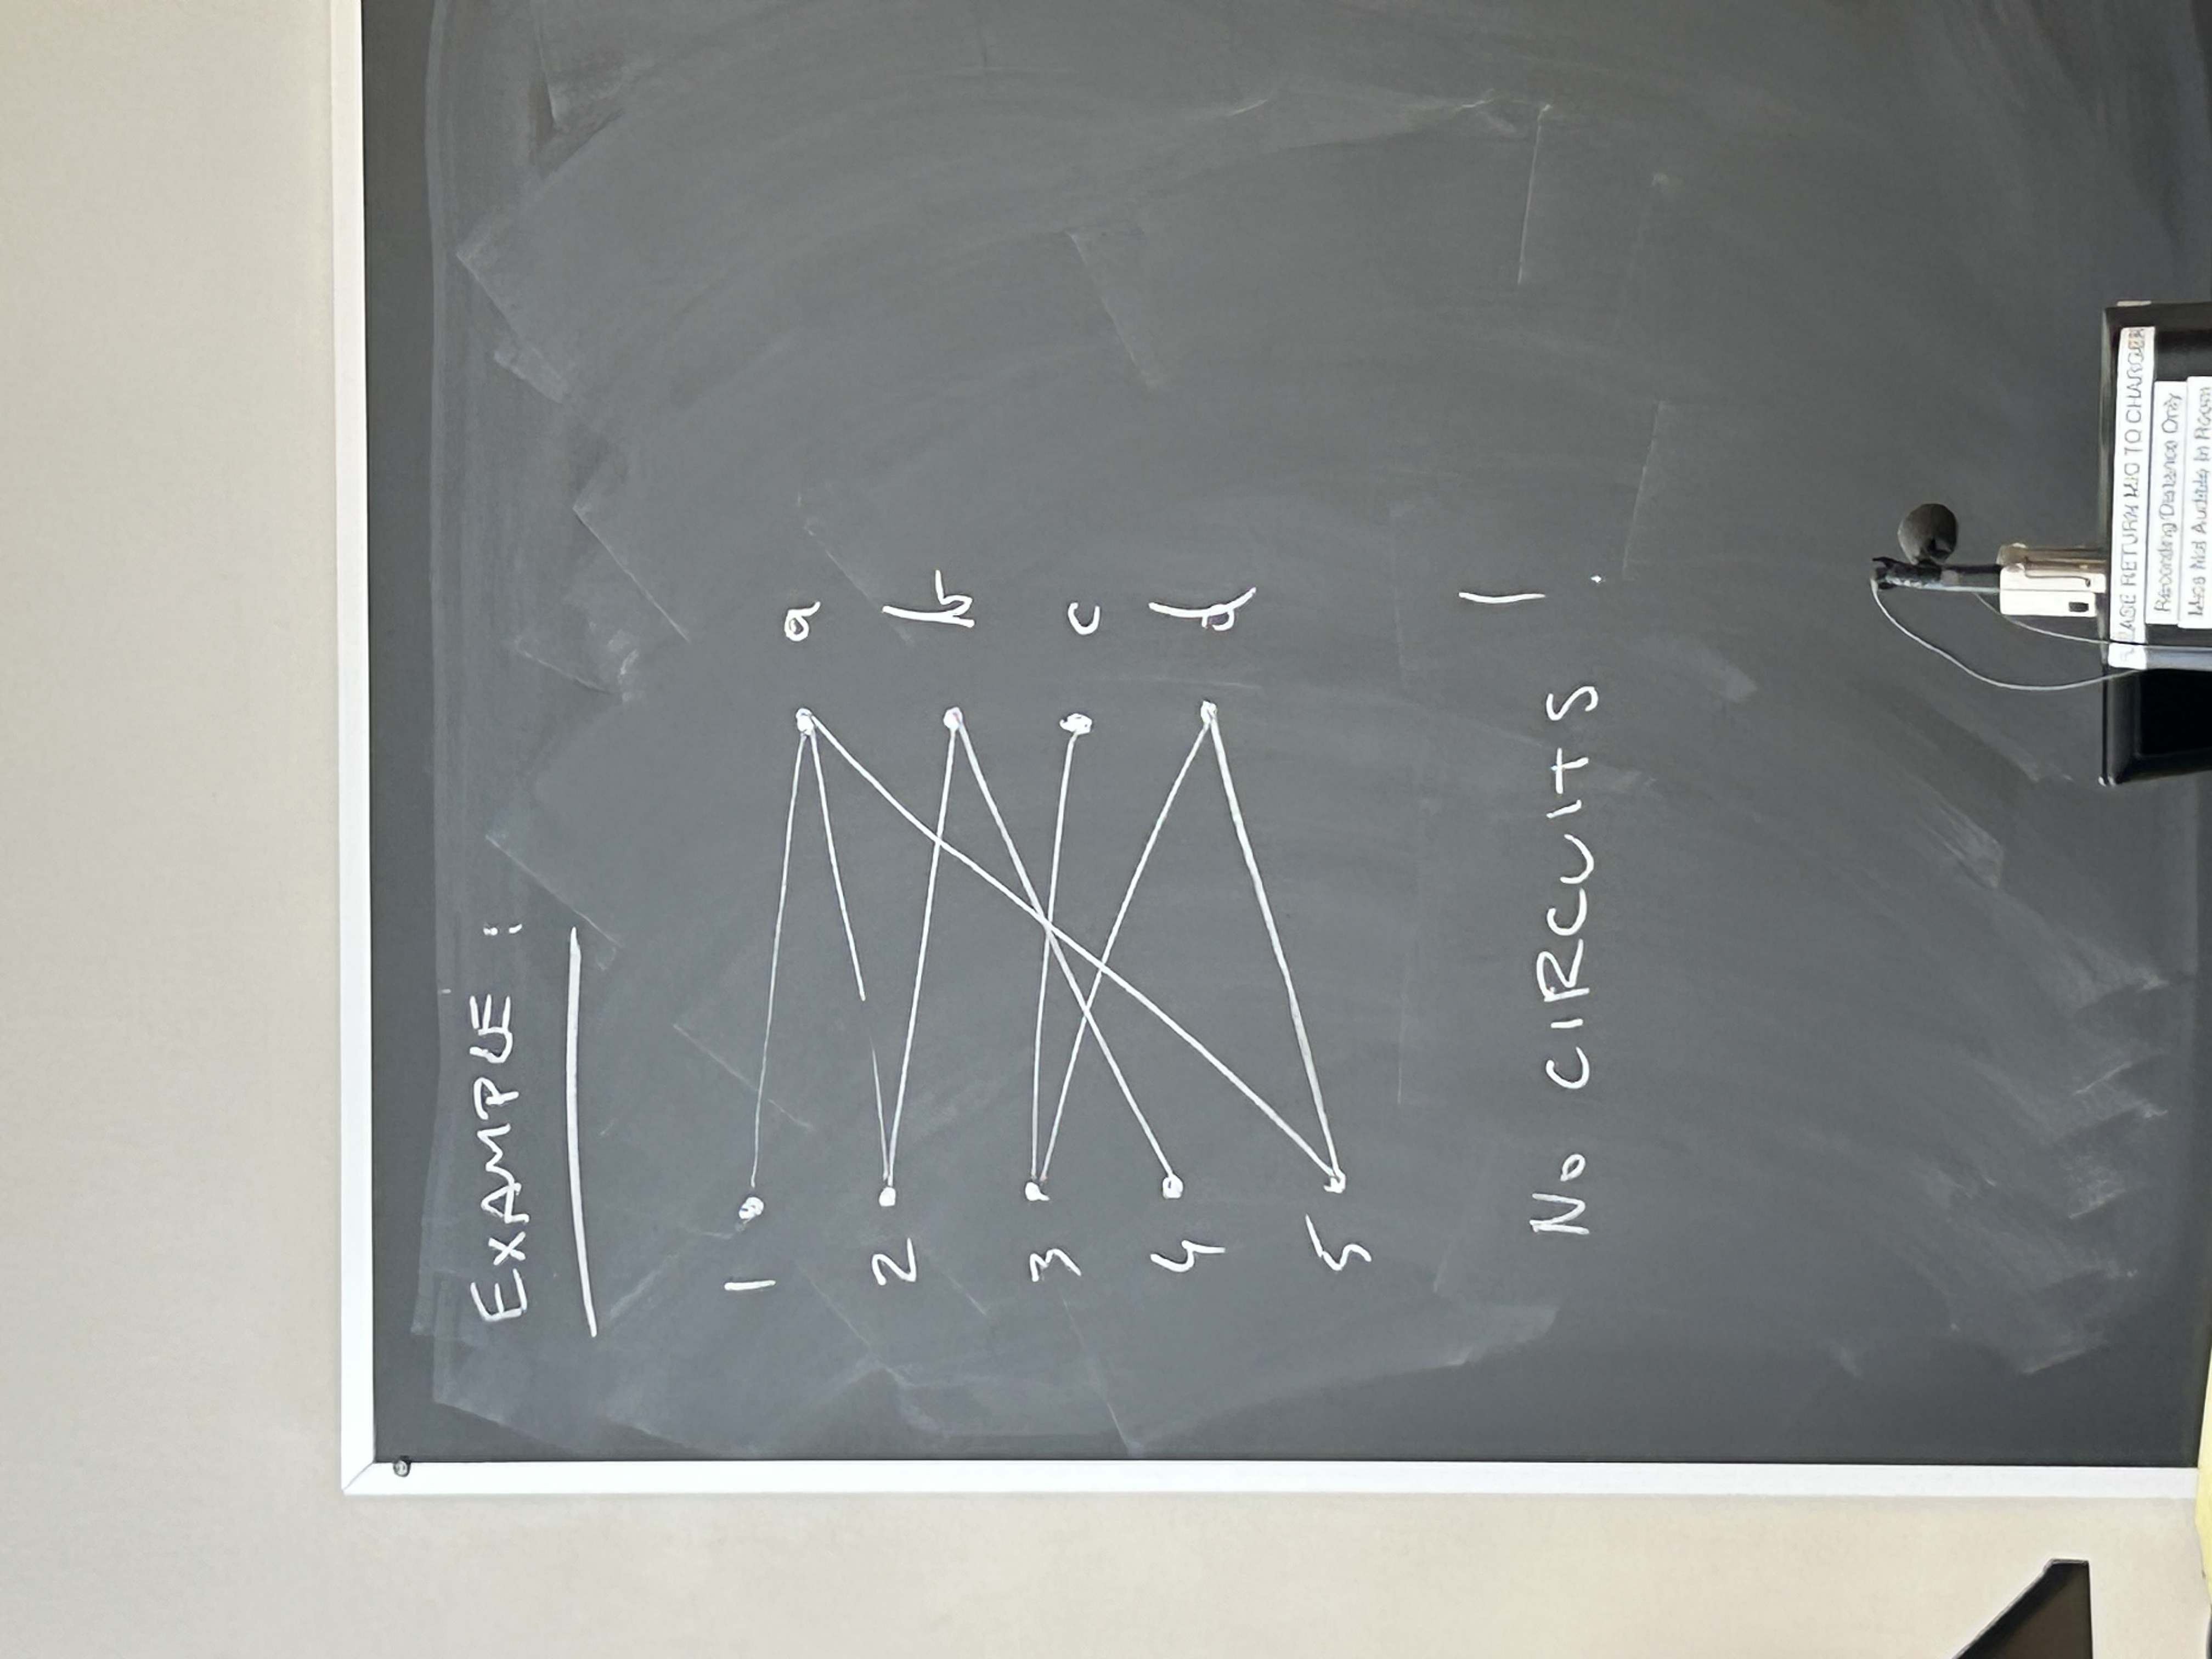 EXAMPLE :
1
a
2
b
3
c
4
d
5
No CIRCUITS !
RETURN MIC TO CHARGER
Recording Distance Only
Mics Not Audible In Room